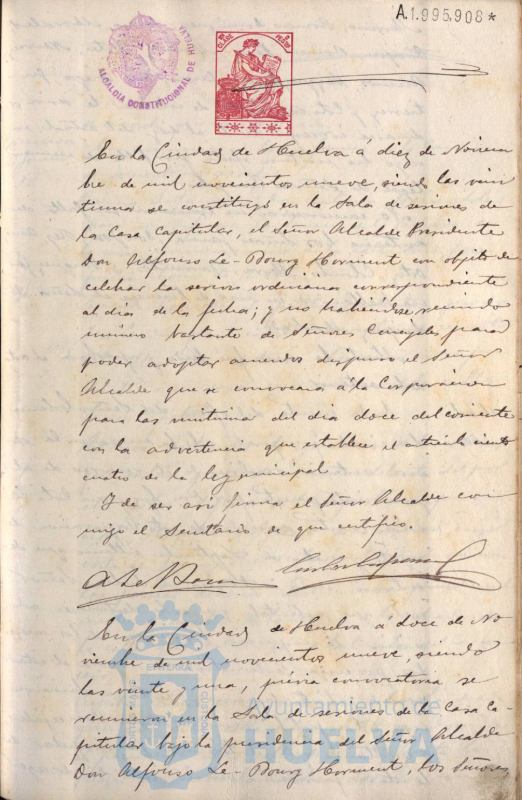 A.1.995.908*
ALCALDIA CONSTITUCIONAL DE HUELVA
En la Ciudad de Huelva á diez de Noviem
bre de mil novecientos nueve, siendo las vein
tiuna se constituyó en la Sala de sesiones de
la Casa Capitular, el Señor Alcalde Presidente
Don Alfonso Le-Bourg Norment con objeto de
celebrar la sesion ordinaria correspondiente
al dia de la fecha; y no habiéndose reunido
número bastante de Señores Concejales para
poder adoptar acuerdos dispuso el Señor
Alcalde que se convocara á la Corporacion
para las veintiuna del dia doce del corriente
con la advertencia que establece el articulo ciento
cuatro de la ley municipal
Y de ser asi firma el Señor Alcalde con
migo el Secretario de que certifico.
En la Ciudad de Huelva á doce de No
viembre de mil novecientos nueve, siendo
las veinte y una, prévia convocatoria se
reunieron en la Sala de sesiones de la Casa Ca
pitular bajo la presidencia del Señor Alcalde
Don Alfonso Le-Bourg Norment, los Señores
Ayuntamiento de
HUELVA